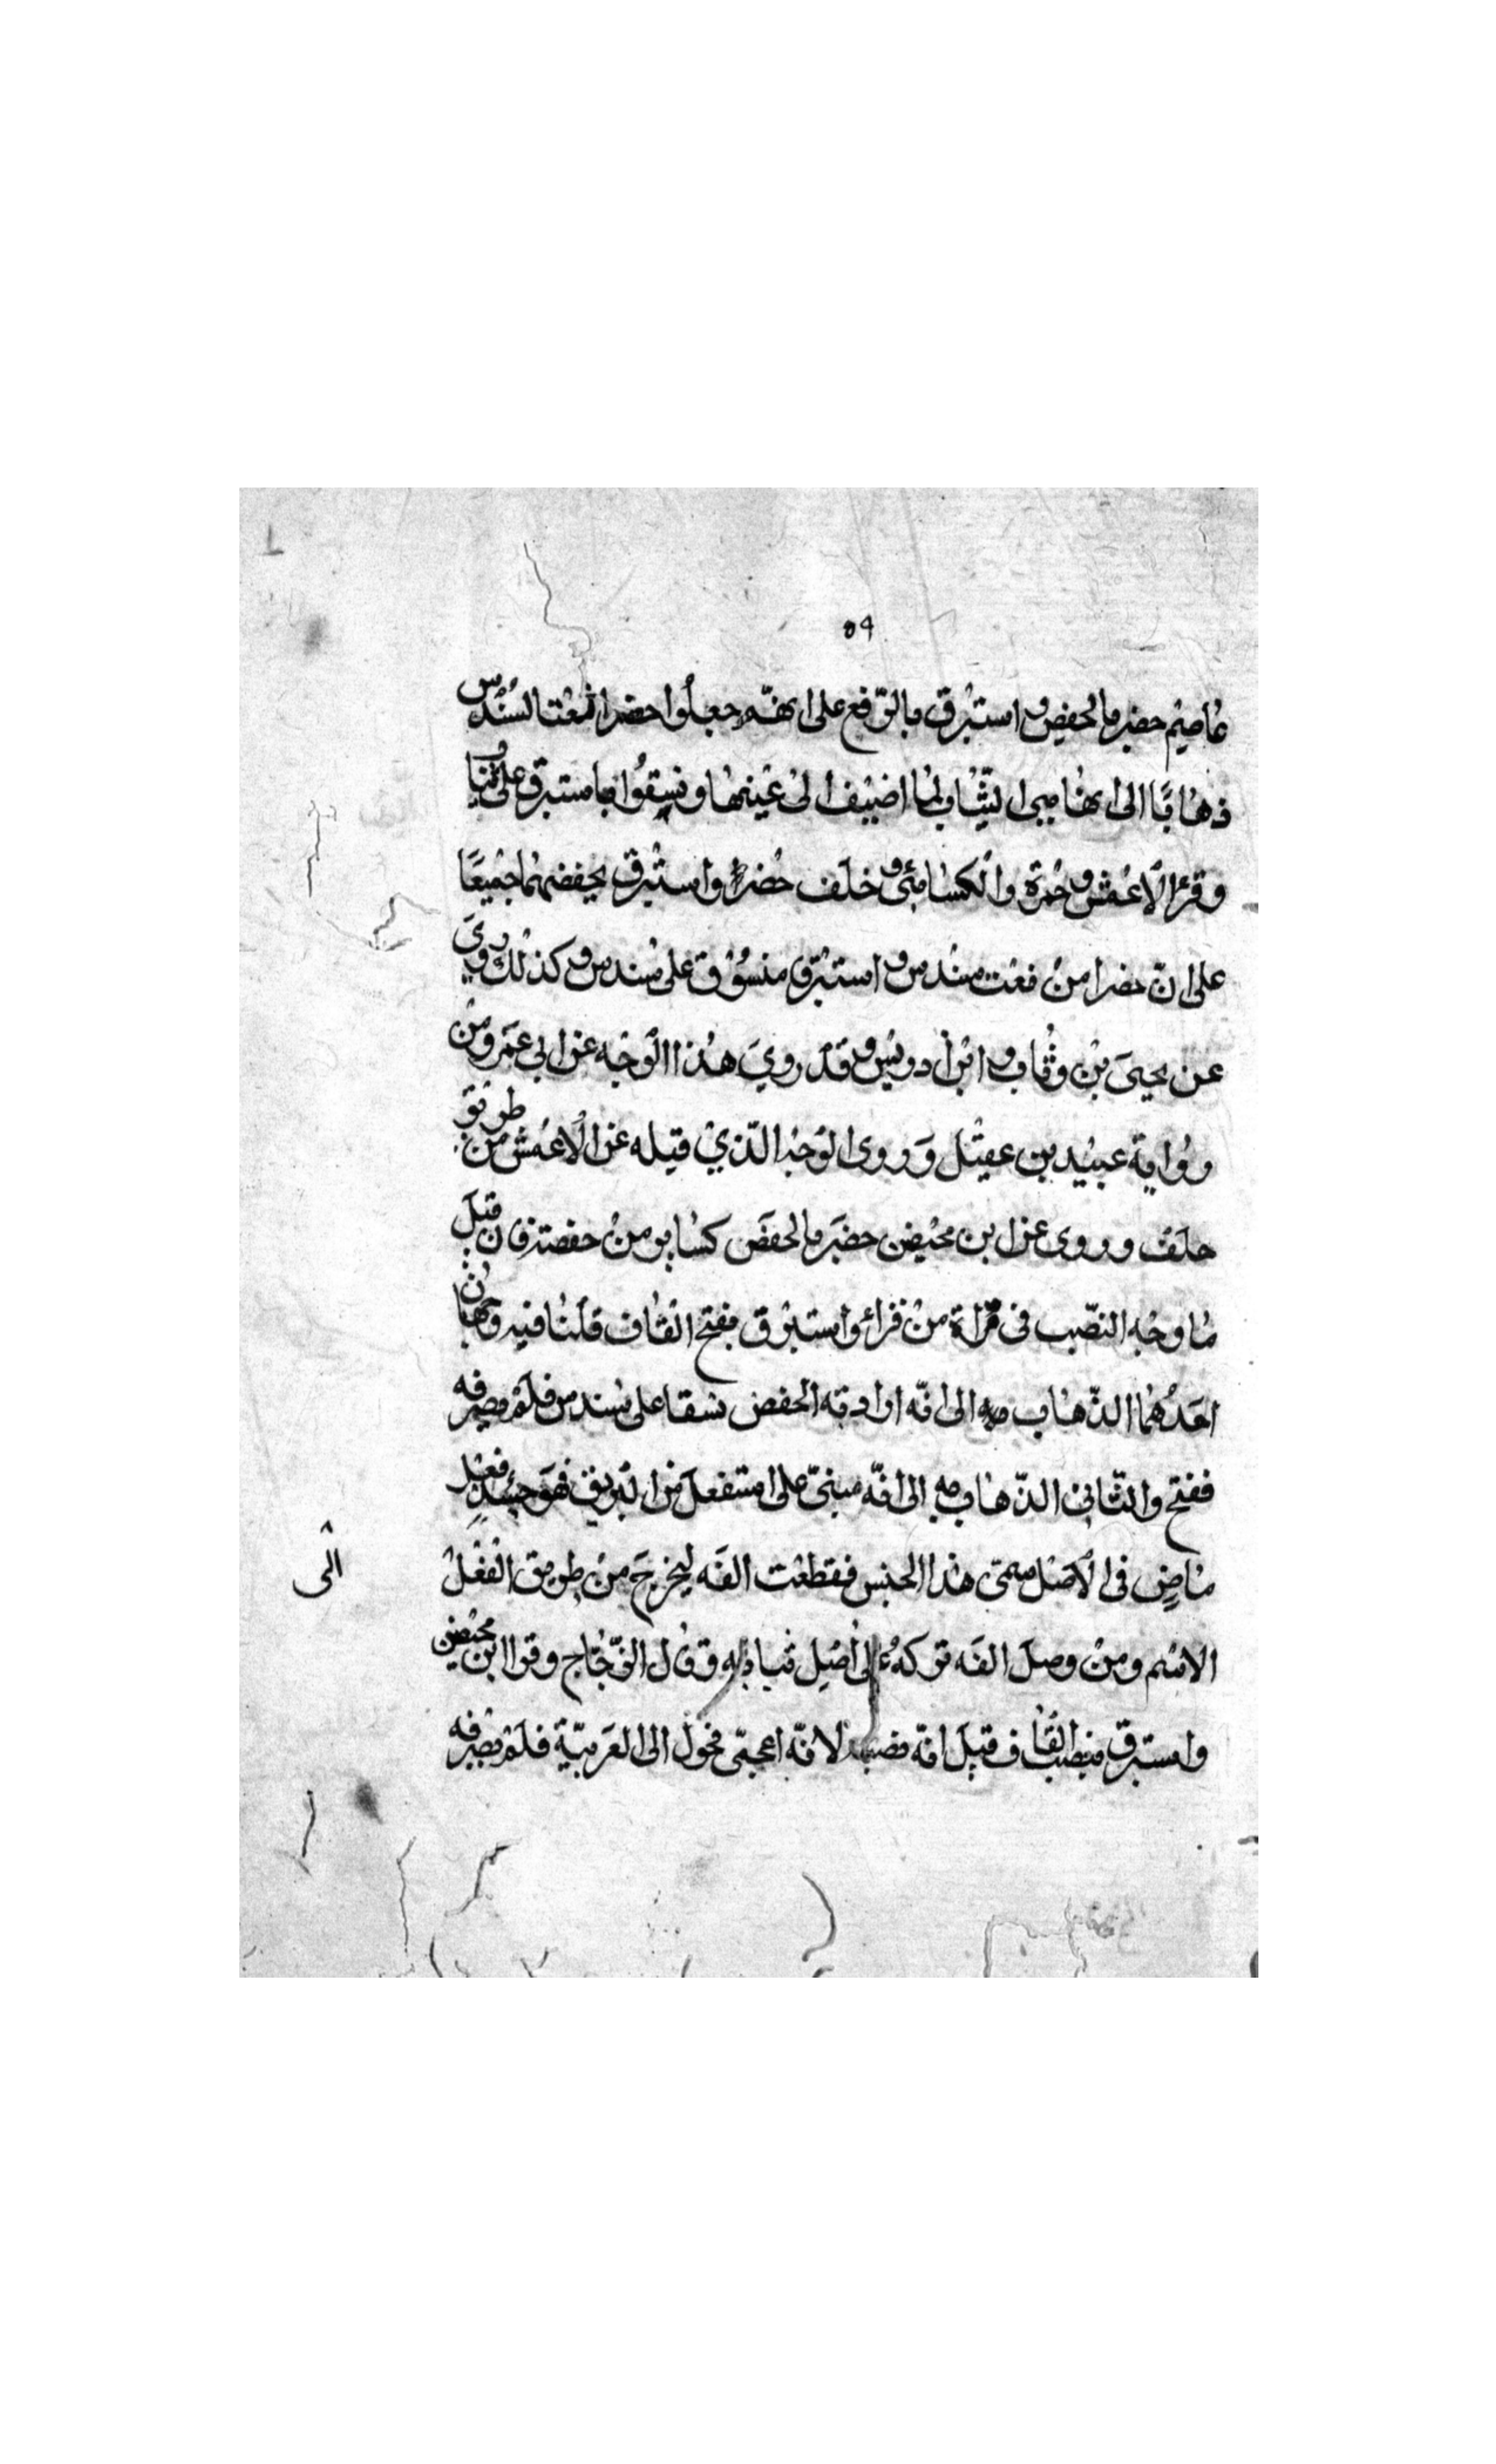 ٥٩
عاصم خضر بالخفض واستبرق بالرفع على انهم جعلوا خضرا نعتا لسندس
ذهابا الى انها هي الثياب لما اضيف الى عينها ونسقوا باستبرق على ثياب
وقرأ الاعمش وحمزة والكسائي وخلف خضر واستبرق بخفضهما جميعا
على ان خضرا من نعت سندس واستبرق منسوق على سندس وكذلك روي
عن يحيى بن وثاب وابن ادريس وقد روي هذا الوجه عن ابي عمرو من
رواية عبيد بن عقيل وروى الوجه الذي قبله عن الاعمش من طريق
خلف وروى عن ابن محيصن خضر بالخفض كسابور من حفصته فان قيل
ما وجه النصب في قراءة من قرأ واستبرق بفتح القاف قلنا فيه وجهان
احدهما الذهاب به الى انه اراد به الخفض نسقا على سندس فلم يصرفه
ففتح والثاني الذهاب به الى انه مبني على استفعل من البريق فهو حينئذ فعل
ماض في الاصل سمي هذا الجنس فقطعت الفه ليخرج من طريق الفعل
الى
الاسم ومن وصل الفه تركه الى اصل بنائه وقال الزجاج وقرا ابن محيصن
واستبرق بنصب القاف قيل انه نصب لانه اعجمي فحول الى العربية فلم يصرفه